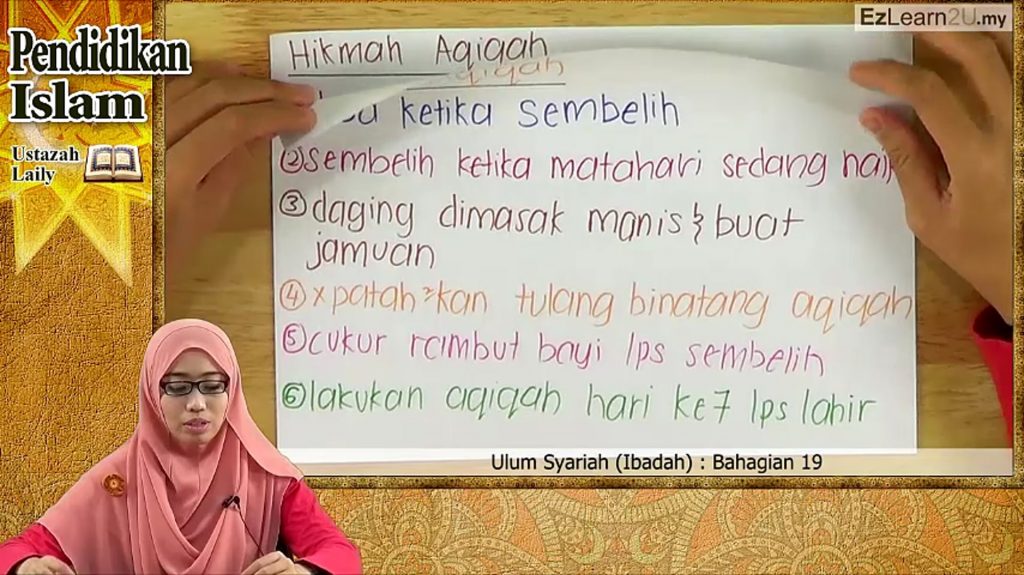 EzLearn2U.my
Pendidikan
Islam
Ustazah
Laily
Hikmah Aqiqah
ketika sembelih
② sembelih ketika matahari sedang naik
③ daging dimasak manis & buat
jamuan
④ x patah²kan tulang binatang aqiqah
⑤ cukur rambut bayi lps sembelih
⑥ lakukan aqiqah hari ke 7 lps lahir
Ulum Syariah (Ibadah) : Bahagian 19